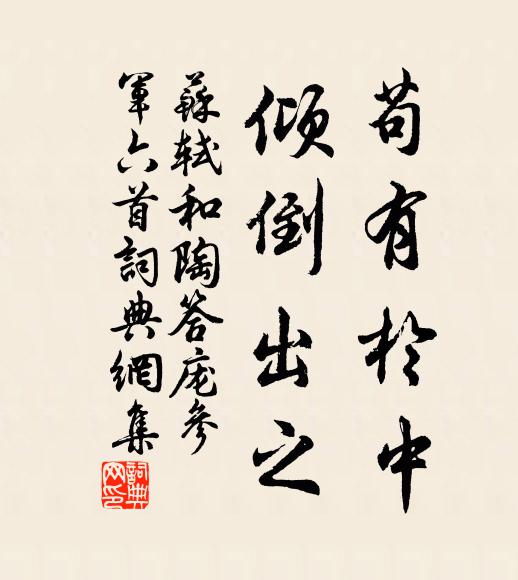 苟有於中
傾倒出之
蘇軾和陶答庞參
軍六首詞典網集
詞典网印